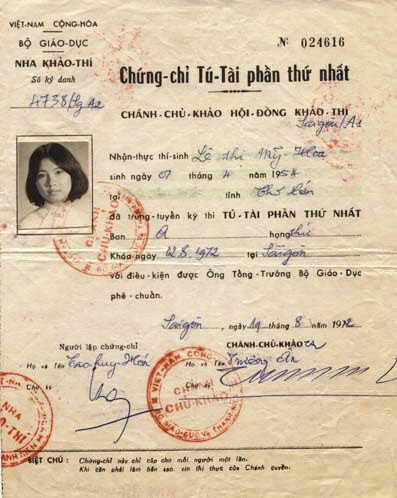 VIỆT-NAM CỘNG-HÒA
BỘ GIÁO-DỤC
NHA KHẢO-THÍ
Số ký danh
4738/Sg A2
№ 024616
Chứng-chỉ Tú-Tài phần thứ nhất
CHÁNH-CHỦ-KHẢO HỘI-ĐỒNG KHẢO-THÍ
Saigon/A1
Nhận-thực thí-sinh Lê thị Mỹ-Hoa
sinh ngày 07 4 1954
tại tỉnh Chợ lớn
đã trúng-tuyển kỳ thi TÚ-TÀI PHẦN THỨ NHẤT
Ban A hạng thứ
Khóa ngày 02.8.1972 tại Saigon
với điều-kiện được Ông Tổng-Trưởng Bộ Giáo-Dục
phê-chuẩn.
Saigon, ngày 19 8 năm 1972
Người lập chứng-chỉ CHÁNH-CHỦ-KHẢO
Họ và Tên Họ và Tên Trương Ân
Chữ ký Chữ ký
VIỆT-NAM CỘNG
CHÁNH
CHỦ-KHẢO
NHA
KHẢO-THÍ
BIỆT CHÚ : Chứng-chỉ này chỉ cấp cho mỗi người một lần.
Khi cần phải làm bản sao, xin thị thực của Chánh quyền.